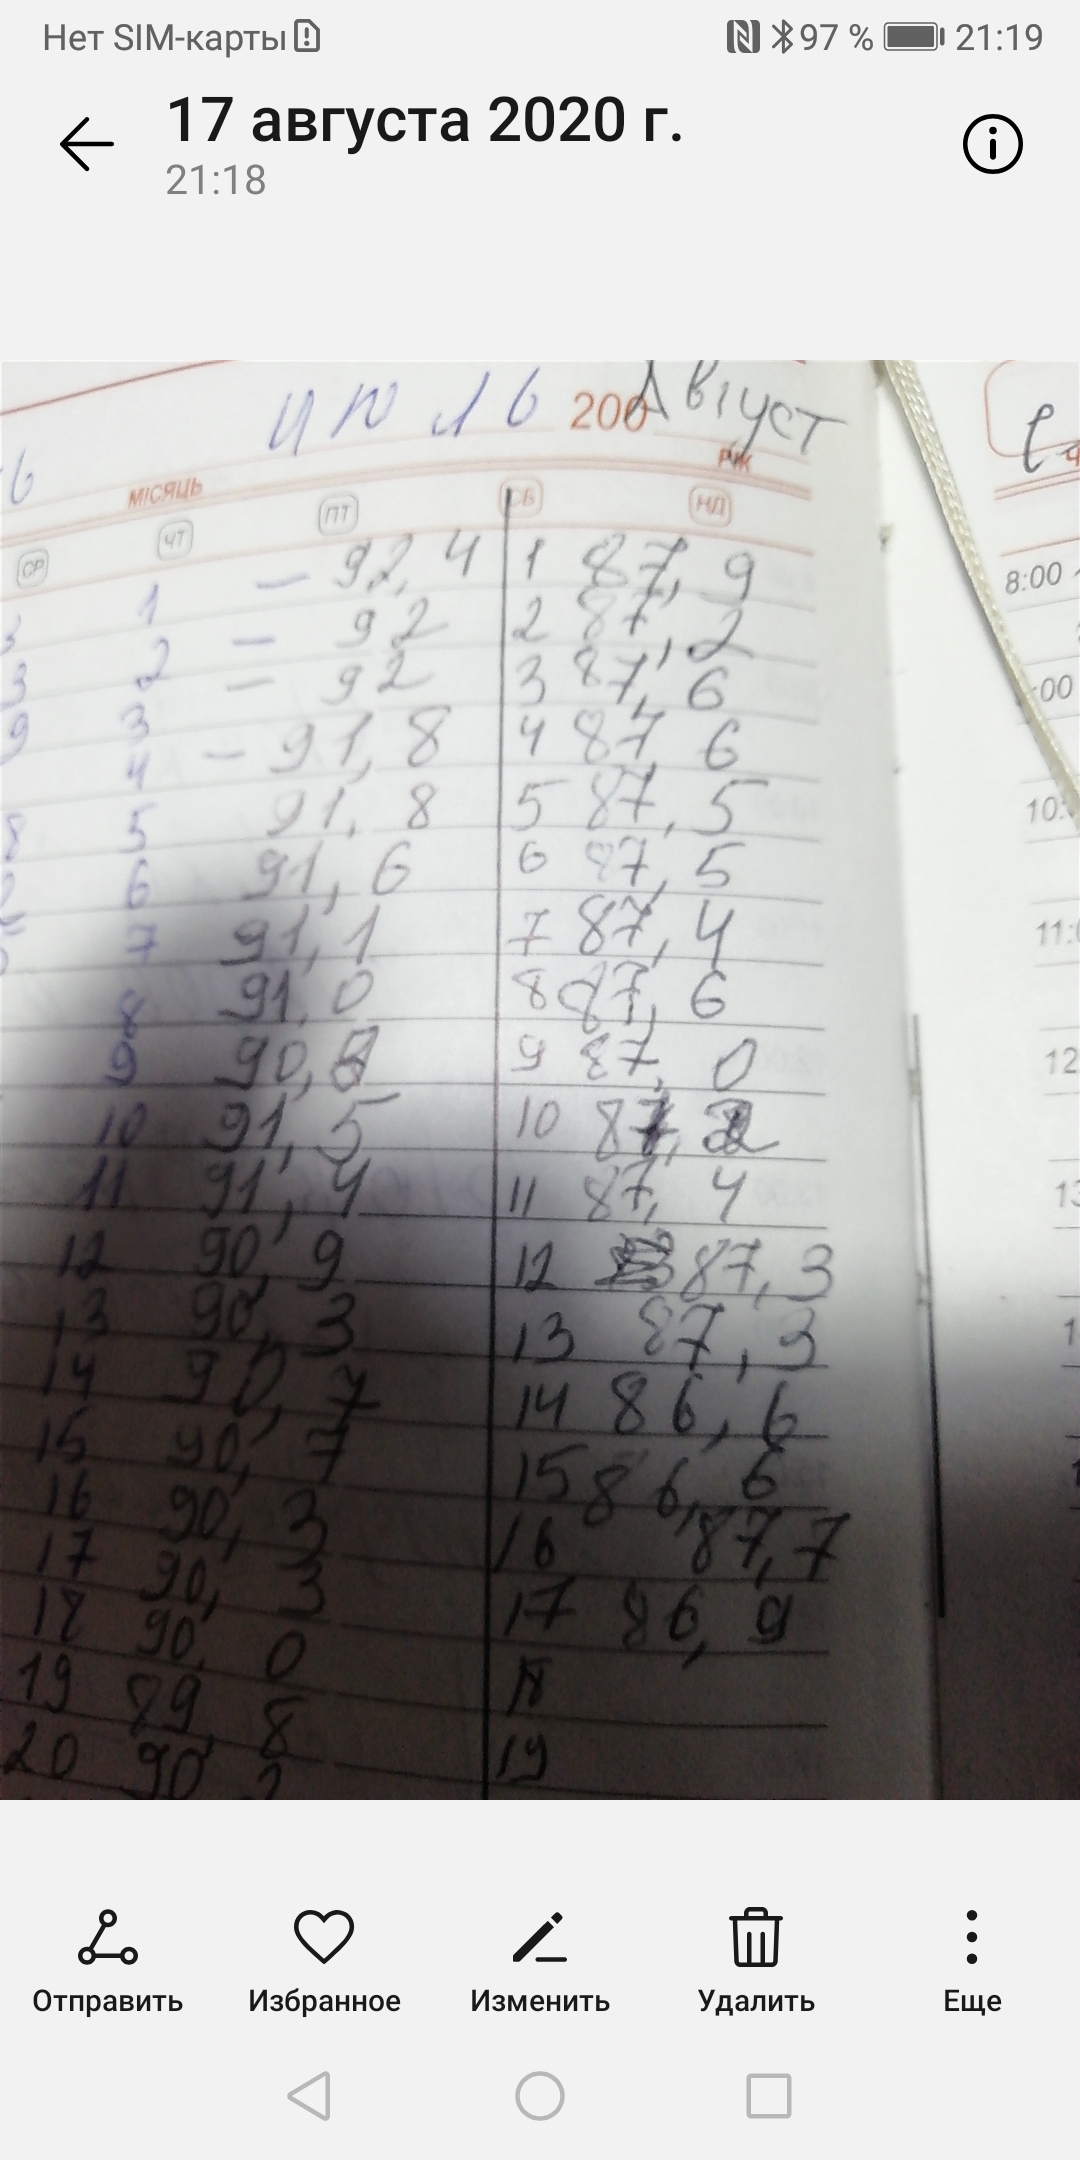 Нет SIM-карты 97 % 21:19
17 августа 2020 г.
21:18
июль 200 Август
МІСЯЦЬ РІК
СР ЧТ ПТ СБ НД
1 — 92,4 1 87,9
8:00
2 — 92 2 87,2
3 — 92 3 87,6
4 — 91,8 4 87,6
5 91,8 5 87,5
6 91,6 6 87,5
7 91,1 7 87,4
8 91,0 8 87,6
9 90, 9 87,0
10 91,5 10 87,2
11 91,4 11 87,4
12 90,9 12 87,3
13 90,3 13 87,3
14 90,7 14 86,6
15 90,7 15 86,6
16 90,3 16 87,7
17 90,3 17 86,9
18 90,0 18
19 89,8 19
20 90
Отправить Избранное Изменить Удалить Еще